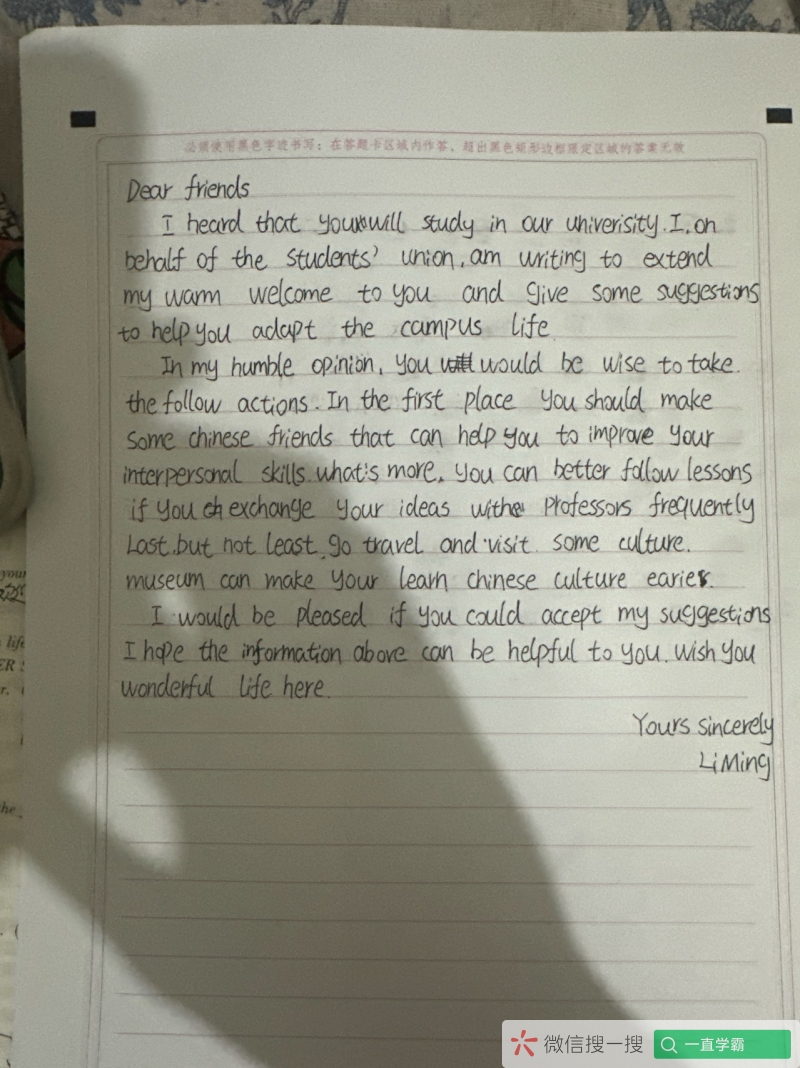 必须使用黑色字迹书写：在答题卡区域内作答，超出黑色矩形边框限定区域的答案无效
Dear friends
I heard that you will study in our univerisity. I, on
behalf of the students' union, am writing to extend
my warm welcome to you and give some suggestions
to help you adapt the campus life.
In my humble opinion, you would be wise to take.
the follow actions. In the first place you should make
some chinese friends that can help you to improve your
interpersonal skills. what's more, you can better follow lessons
if you exchange your ideas with professors frequently
Last. but not least, go travel and visit some culture.
museum can make your learn chinese culture earier.
I would be pleased if you could accept my suggestions
I hope the information above can be helpful to you. wish you
wonderful life here.
Yours sincerely
Li Ming
微信搜一搜 一直学霸